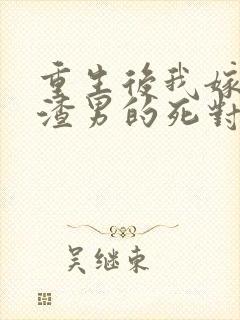 重生後我嫁
渣男的死對
吴继東